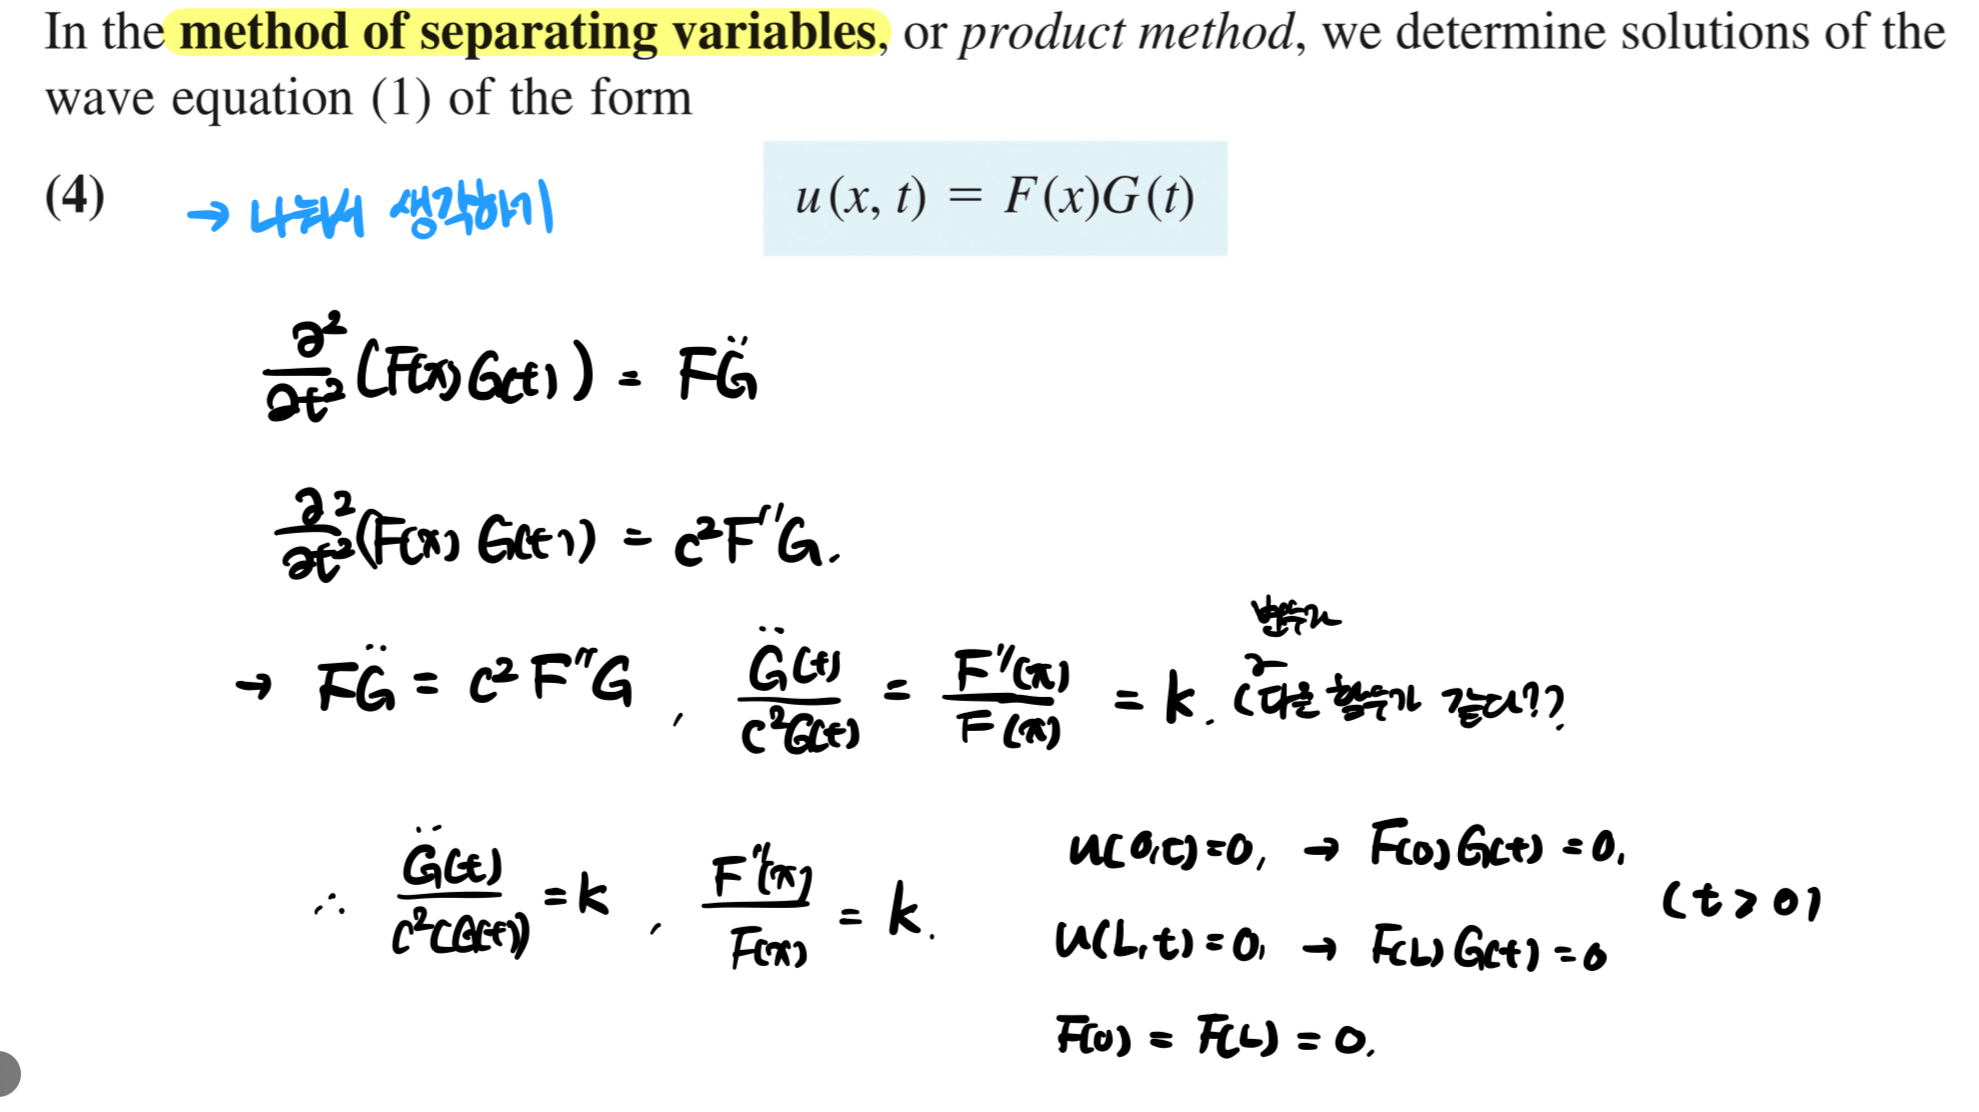 In the method of separating variables, or product method, we determine solutions of the
wave equation (1) of the form
(4) → 나눠서 생각하기 u(x, t) = F(x)G(t)
∂²/∂t² (F(x)G(t)) = FG̈
∂²/∂t² (F(x) G(t)) = c²F''G.
변수가
→ FG̈ = c²F''G , G̈(t)/c²G(t) = F''(x)/F(x) = k. (다른 함수가 같다??
∴ G̈(t)/c²(G(t)) = k , F''(x)/F(x) = k.
u(0,t)=0, → F(0)G(t) = 0,
(t≥0)
u(L,t)=0, → F(L)G(t) = 0
F(0) = F(L) = 0.